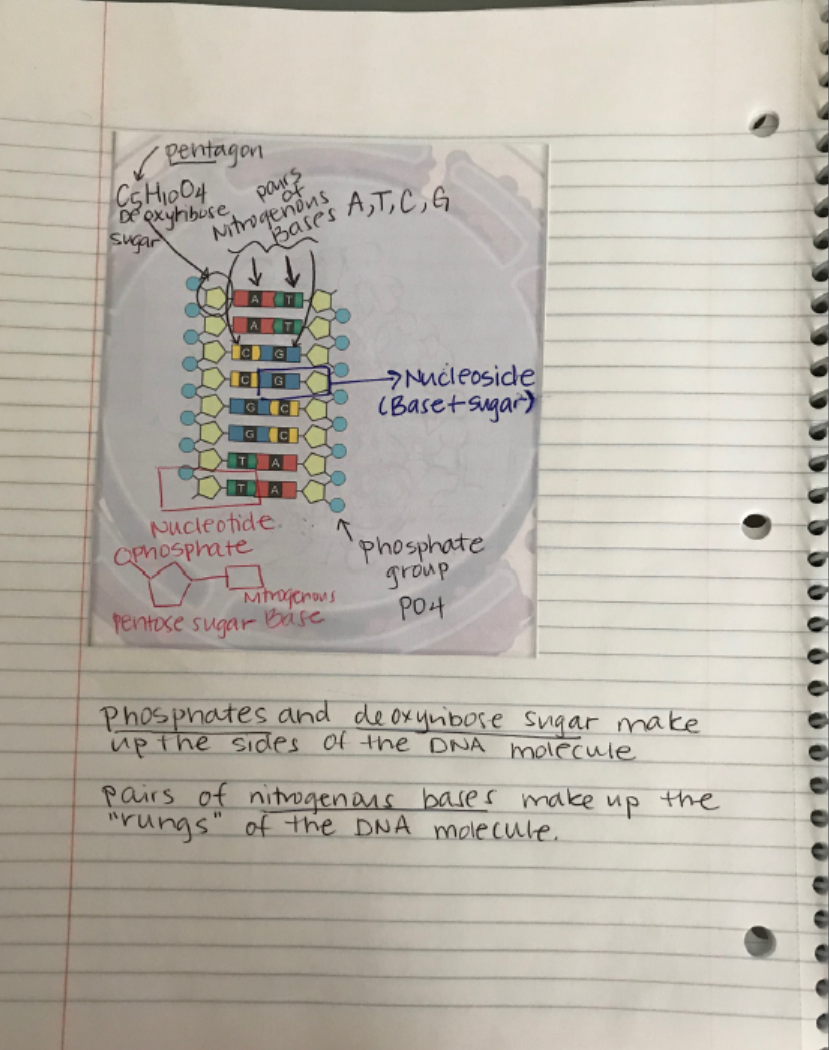 pentagon
C5H10O4
Deoxyribose
sugar
pairs
of
Nitrogenous
Bases
A,T,C,G
A T
A T
C G
C G
G C
G C
T A
T A
Nucleoside
(Base+sugar)
Nucleotide
phosphate
Nitrogenous
Base
pentose sugar
phosphate
group
PO4
phosphates and deoxyribose sugar make
up the sides of the DNA molecule
pairs of nitrogenous bases make up the
"rungs" of the DNA molecule.